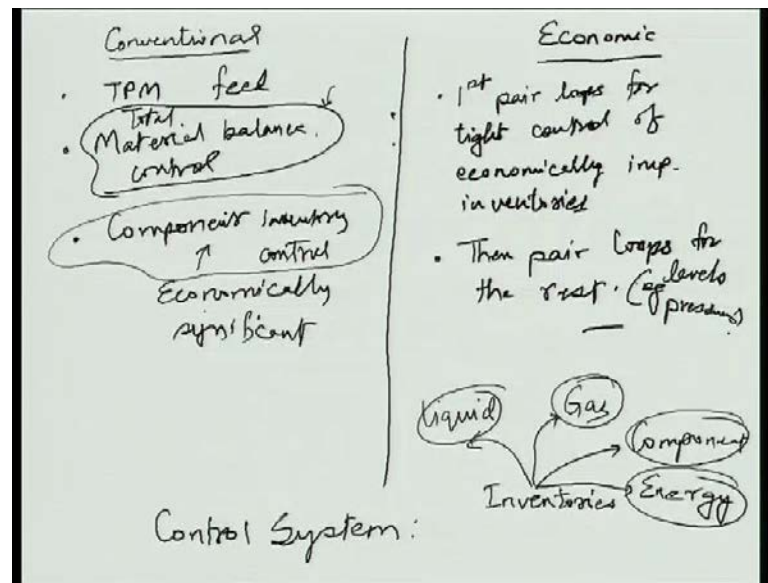 Conventional
. TPM feed
Total
. Material balance
control
. Component Inventory
control
Economically
significant
Economic
. 1st pair loops for
tight control of
economically imp.
inventories
. Then pair loops for
the rest. (eg levels
pressures)
Liquid
Gas
Component
Inventories
Energy
Control System: